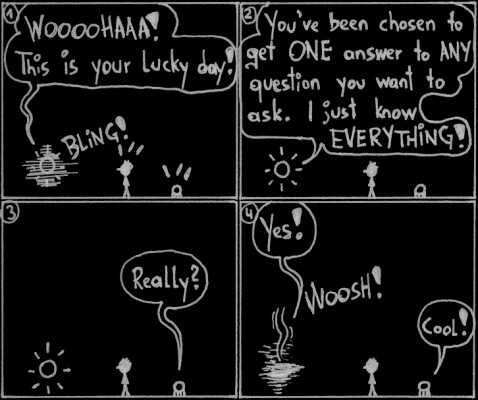 1
WOOOOHAAA!
This is your lucky day!
BLING!
2
You've been chosen to
get ONE answer to ANY
question you want to
ask. I just know
EVERYTHING!
3
Really?
4
Yes!
WOOSH!
Cool!